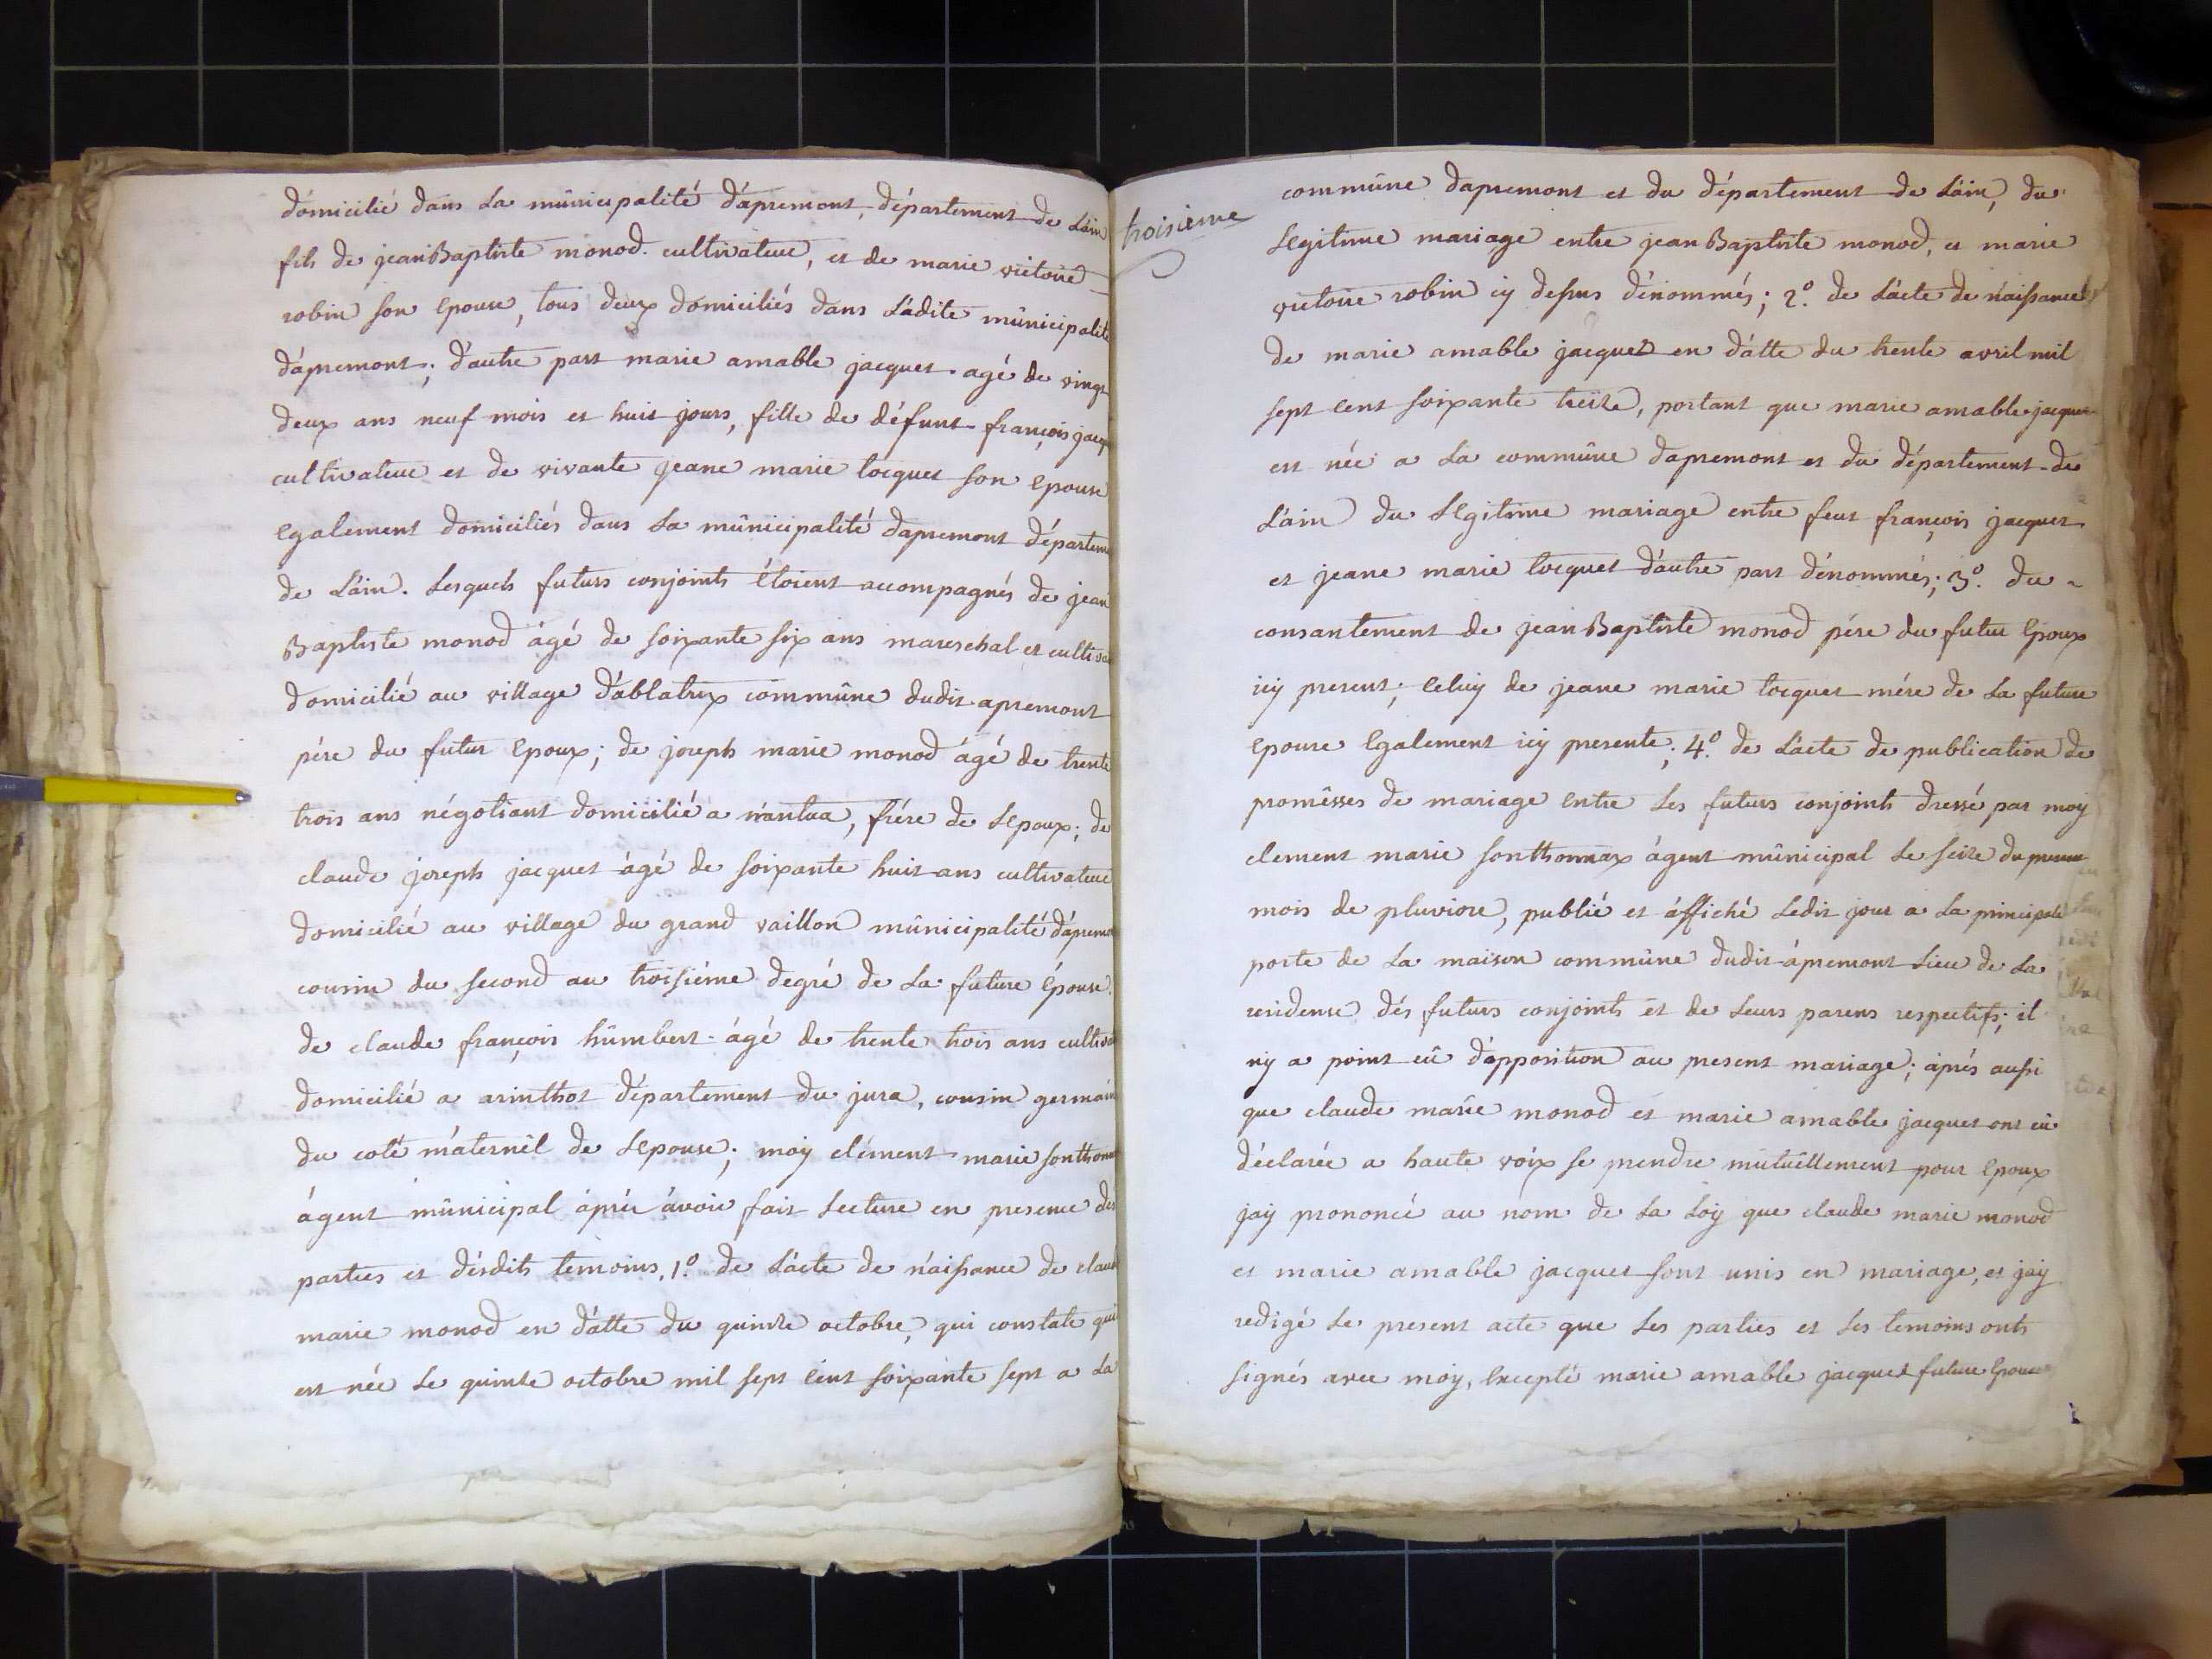 domicilié dans La mûnicipalité d'apremont, département de L'ain
fils de jean Baptiste monod. cultivateur, et de marie victoire
robin son epouse, tous deux domiciliés dans Ladite mûnicipalité
d'apremont; d'autre part marie amable jacquet agé de vingt
deux ans neuf mois et huit jours, fille de défunt françois jacq
cultivateur et de vivante jeane marie tocquet son epouse
egalement domiciliés dans La mûnicipalité dapremont départeme
de L'ain. Lesquels futurs conjoints étoient accompagnés de jean
Baptiste monod âgé de soixante six ans mareschal et cultiva
domicilié au village d'ablatrix commûne dudit apremont
pére du futur epoux; de joseph marie monod âgé de trente
trois ans négotiant domicilié a nantua, frére de Lepoux; de
claude joseph jacquet âgé de soixante huit ans cultivateur
domicilié au village du grand vaillon mûnicipalité d'aprem
cousin du second au troisiéme degré de La future épouse.
de claude françois hûmbert âgé de trente trois ans cultiva
domicilié a arinthot département du jura, cousin germain
du coté maternêl de Lepouse; moy clément marie sonthon
ágent mûnicipal áprés ávoir fait Lecture en presence des
parties et désdits temoins, 1º. de L'acte de naissance de claud
marie monod en datte du quinze octobre, qui constate qui
est née Le quinze octobre mil sept cent soixante sept a La
troisieme
commûne dapremont et du département de L'ain, du
Legitime mariage entre jean Baptiste monod, et marie
victoire robin cy dessus dénommés; 2º. de L'acte de naissance
de marie amable jacquet en datte du trente avril mil
sept cent soixante treize, portant que marie amable jacque
est née a La commûne dapremont et du département de
L'ain du Legitime mariage entre feut françois jacquet
et jeane marie tocquet d'autre part dénommés; 3º. du
consantement de jean Baptiste monod pére du futur epoux
icy present; celuy de jeane marie tocquet mére de La future
epouse egalement icy presente; 4º. de L'acte de publication de
promêsses de mariage entre Les futurs conjoints dressé par moy
clement marie sonthonnax ágent mûnicipal Le seize du present
mois de pluviose, publié et áffiché Ledit jour a La principale
porte de La maison commûne dudit apremont Lieu de La
residense dés futurs conjoints et de Leurs parens respectifs; il
ny a point eû d'apposition au present mariage; áprés aussi
que claude marie monod et marie amable jacquet ont eû
déclarée a haute voix se prendre mutuêllement pour epoux
jay prononcé au nom de La Loy que claude marie monod
et marie amable jacquet sont unis en mariage, et jay
redigé Le present acte que Les parties et Les temoins onts
signés avec moy, excepté marie amable jacquet future epouse